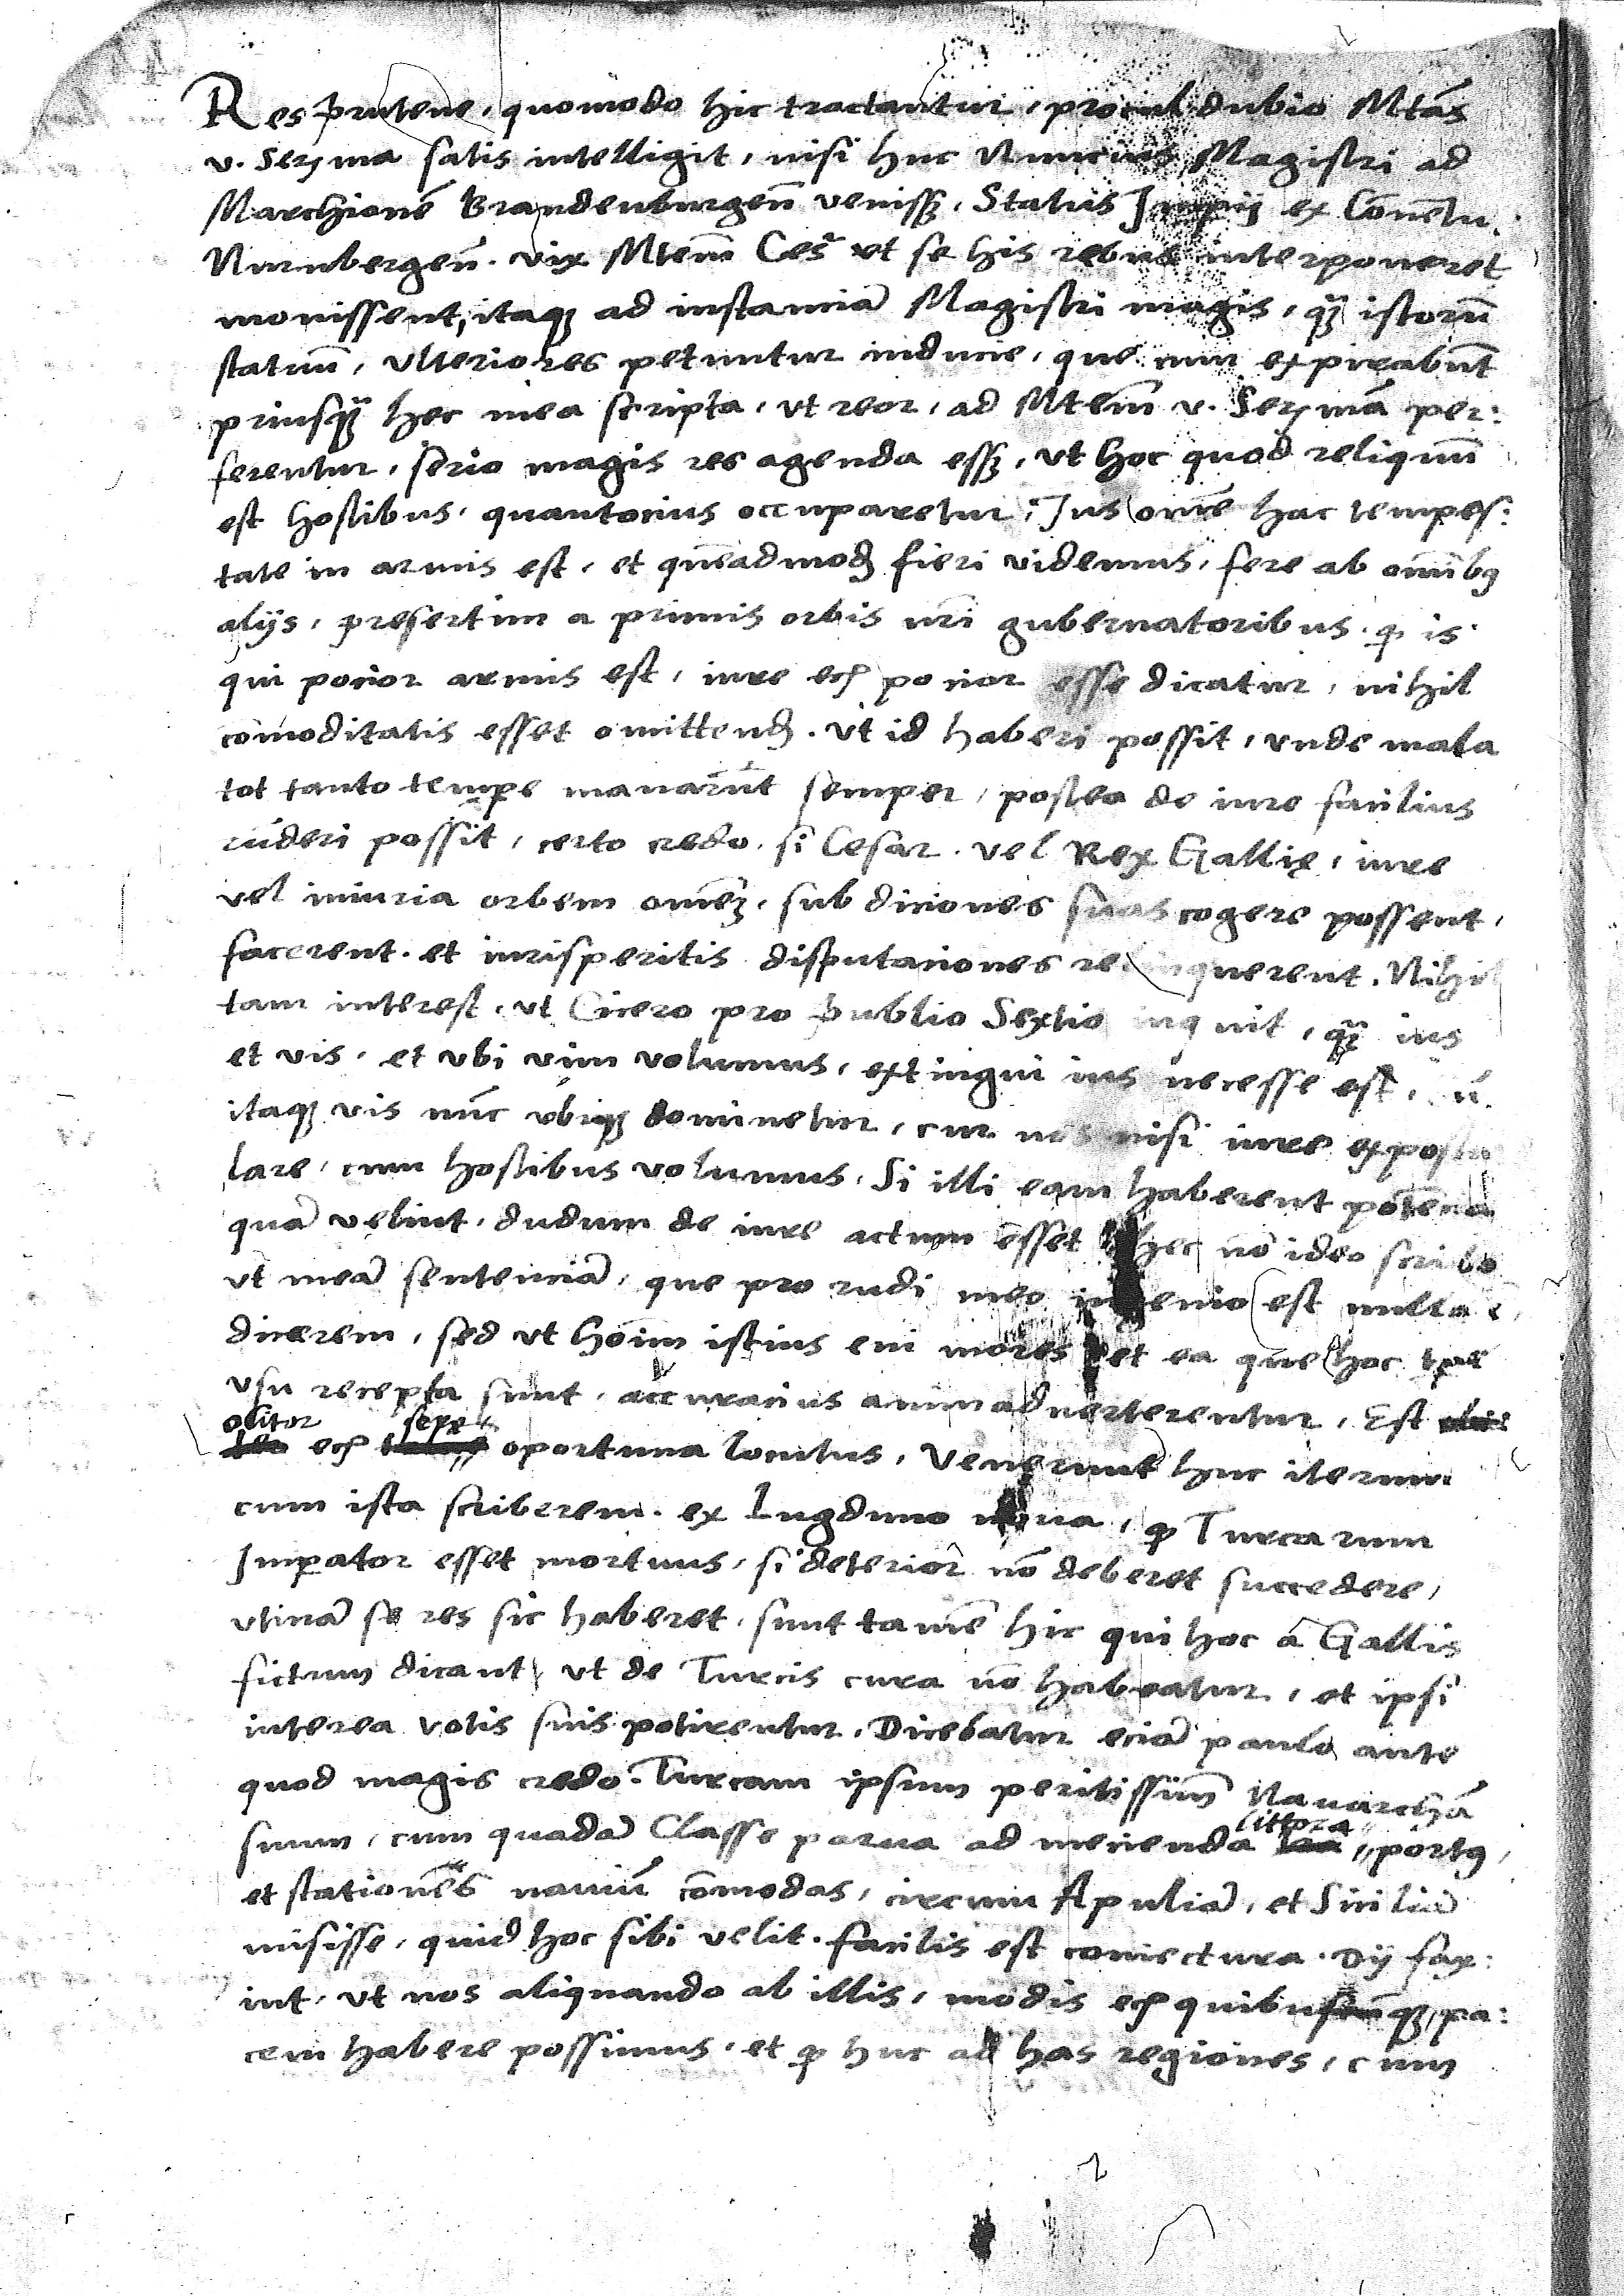 Res Prutene, quomodo hic tractantur, procul dubio Mtas
v. Serma satis intelligit, nisi huc Nuncius Magistri ad
Marchionē Brandenburgeñ venissꝫ, Status Impij ex Conuētu
Nurnbergeñ. vix Mtem Ces. vt se his rebus interponeret
monissent, itaqꝫ ad instanciā Magistri magis, qꝫ istorū
statuū, vlteriores petuntur inducie, que cum expirabūt
priusqꝫ hec mea scripta, vt reor, ad Mtem v. Sermā per:
ferentur, serio magis res agenda essꝫ, vt hoc quod reliquū
est hostibus, quantocius occuparetur, Jus omē hac tempes:
tate in armis est, et quēadmodꝫ fieri videmus, fere ab omībꝫ
alijs, presertim a primis orbis nrī gubernatoribus. ꝙ is
qui pocior armis est, iure ecꝫ pocior esse dicatur, nihil
comoditatis esset omittendꝫ. vt id haberi possit, vnde mala
tot tanto tempe manarūt semper, postea de iure facilius
videri possit, certo credo, si Cesar. vel Rex Gallię, iure
vel iniuria orbem omēꝫ, sub diciones suas cogere possent,
facerent. et iurisperitis disputaciones relinquerent. Nihil
tam interest, vt Cicero pro Publio Sextio inquit, qꝫ ius
et vis, et vbi vim volumus, extingui ius necesse est,
itaqꝫ vis nūc vbiqꝫ dominetur, cur nos nisi iure expostu
lare, cum hostibus volumus, Si illi eam haberent potencia
quā velint, dudum de iure actum esset hec nō ideo scribo
vt meā sentenciā, que pro rudi meo ingenio est nulla
dicerem, sed vt hoīm istius eui mores et ea que hoc tpe
vsu recepta sunt, accuracius animaduerterentur, Est
olitor sepe
ecꝫ oportuna locutus, Venerunt huc iterum
cum ista scriberem. ex Lugduno noua, ꝙ Turcarum
Impator esset mortuus, si deterior nō deberet succedere,
vtinā se res sic haberet, sunt tamē hic qui hoc a Gallis
fictum dicant, vt de Turcis cura nō habeatur, et ipsi
interea votis suis potirentur. Dicebatur eciā paulo ante
quod magis credo. Turcam ipsum peritissimū Nauarchā
littora
suum, cum quadā Classe parua ad mecienda portꝫ,
et stationes nauiū cōmodas, circum Apuliā, et Siciliā
misisse, quid hoc sibi velit. facilis est coniectura. Dij fax:
int, vt nos aliquando ab illis, modis ecꝫ quibusqꝫ, pa:
cem habere possimus, et ꝙ huc ad has regiones, cum